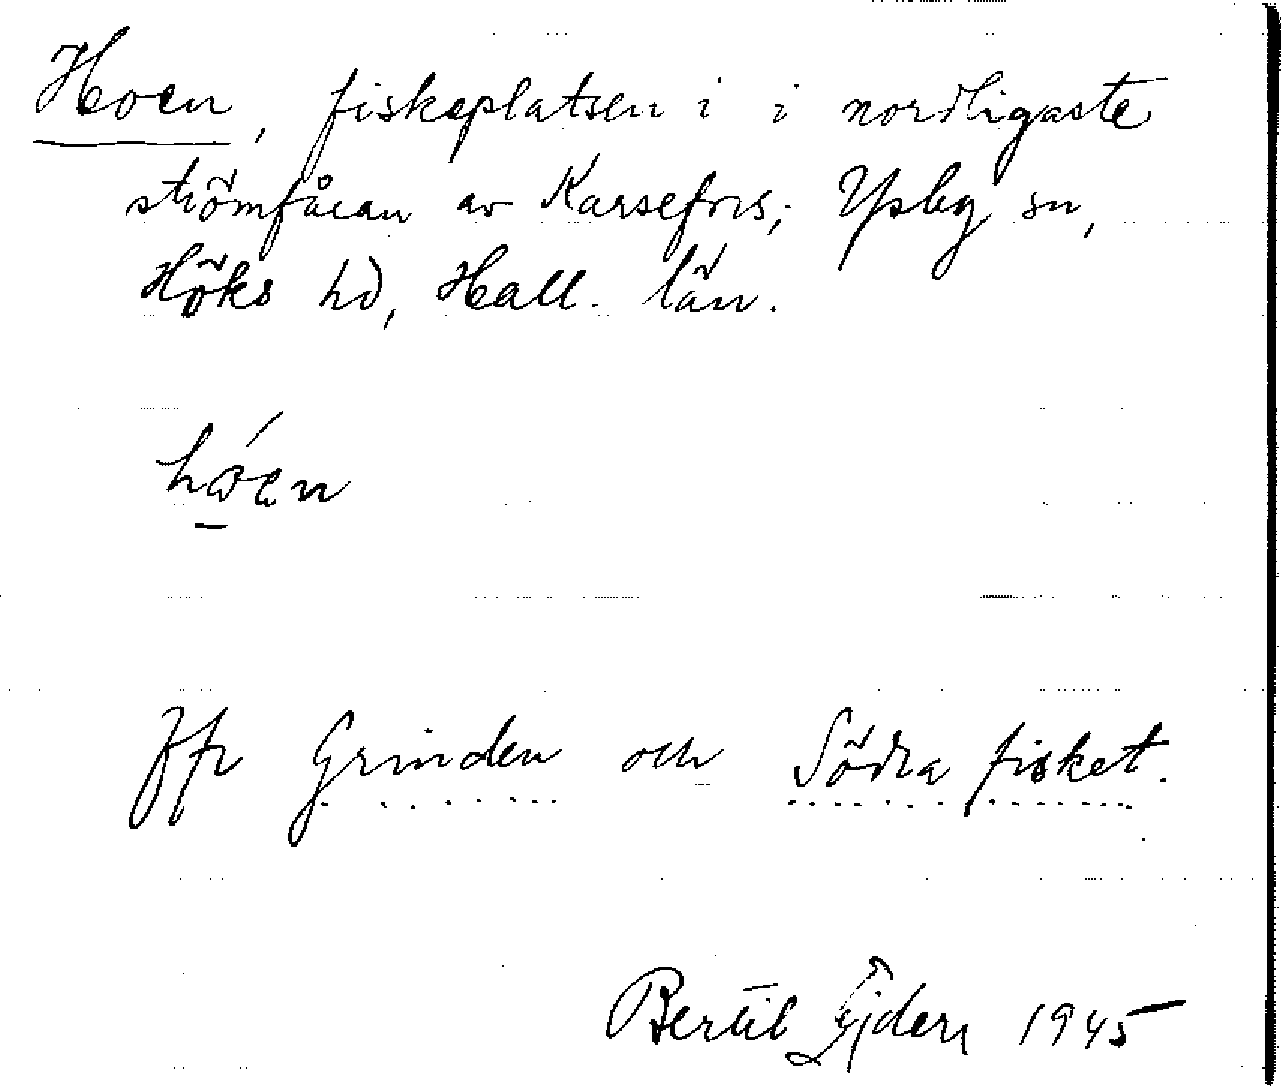 Hoen, fiskeplatsen i i nordligaste
strömfåran av Karsefors, Ysby sn,
Höks hd, Hall. län.
hóen
Jfr Grinden och Södra fisket.
Bertil Ejder 1945